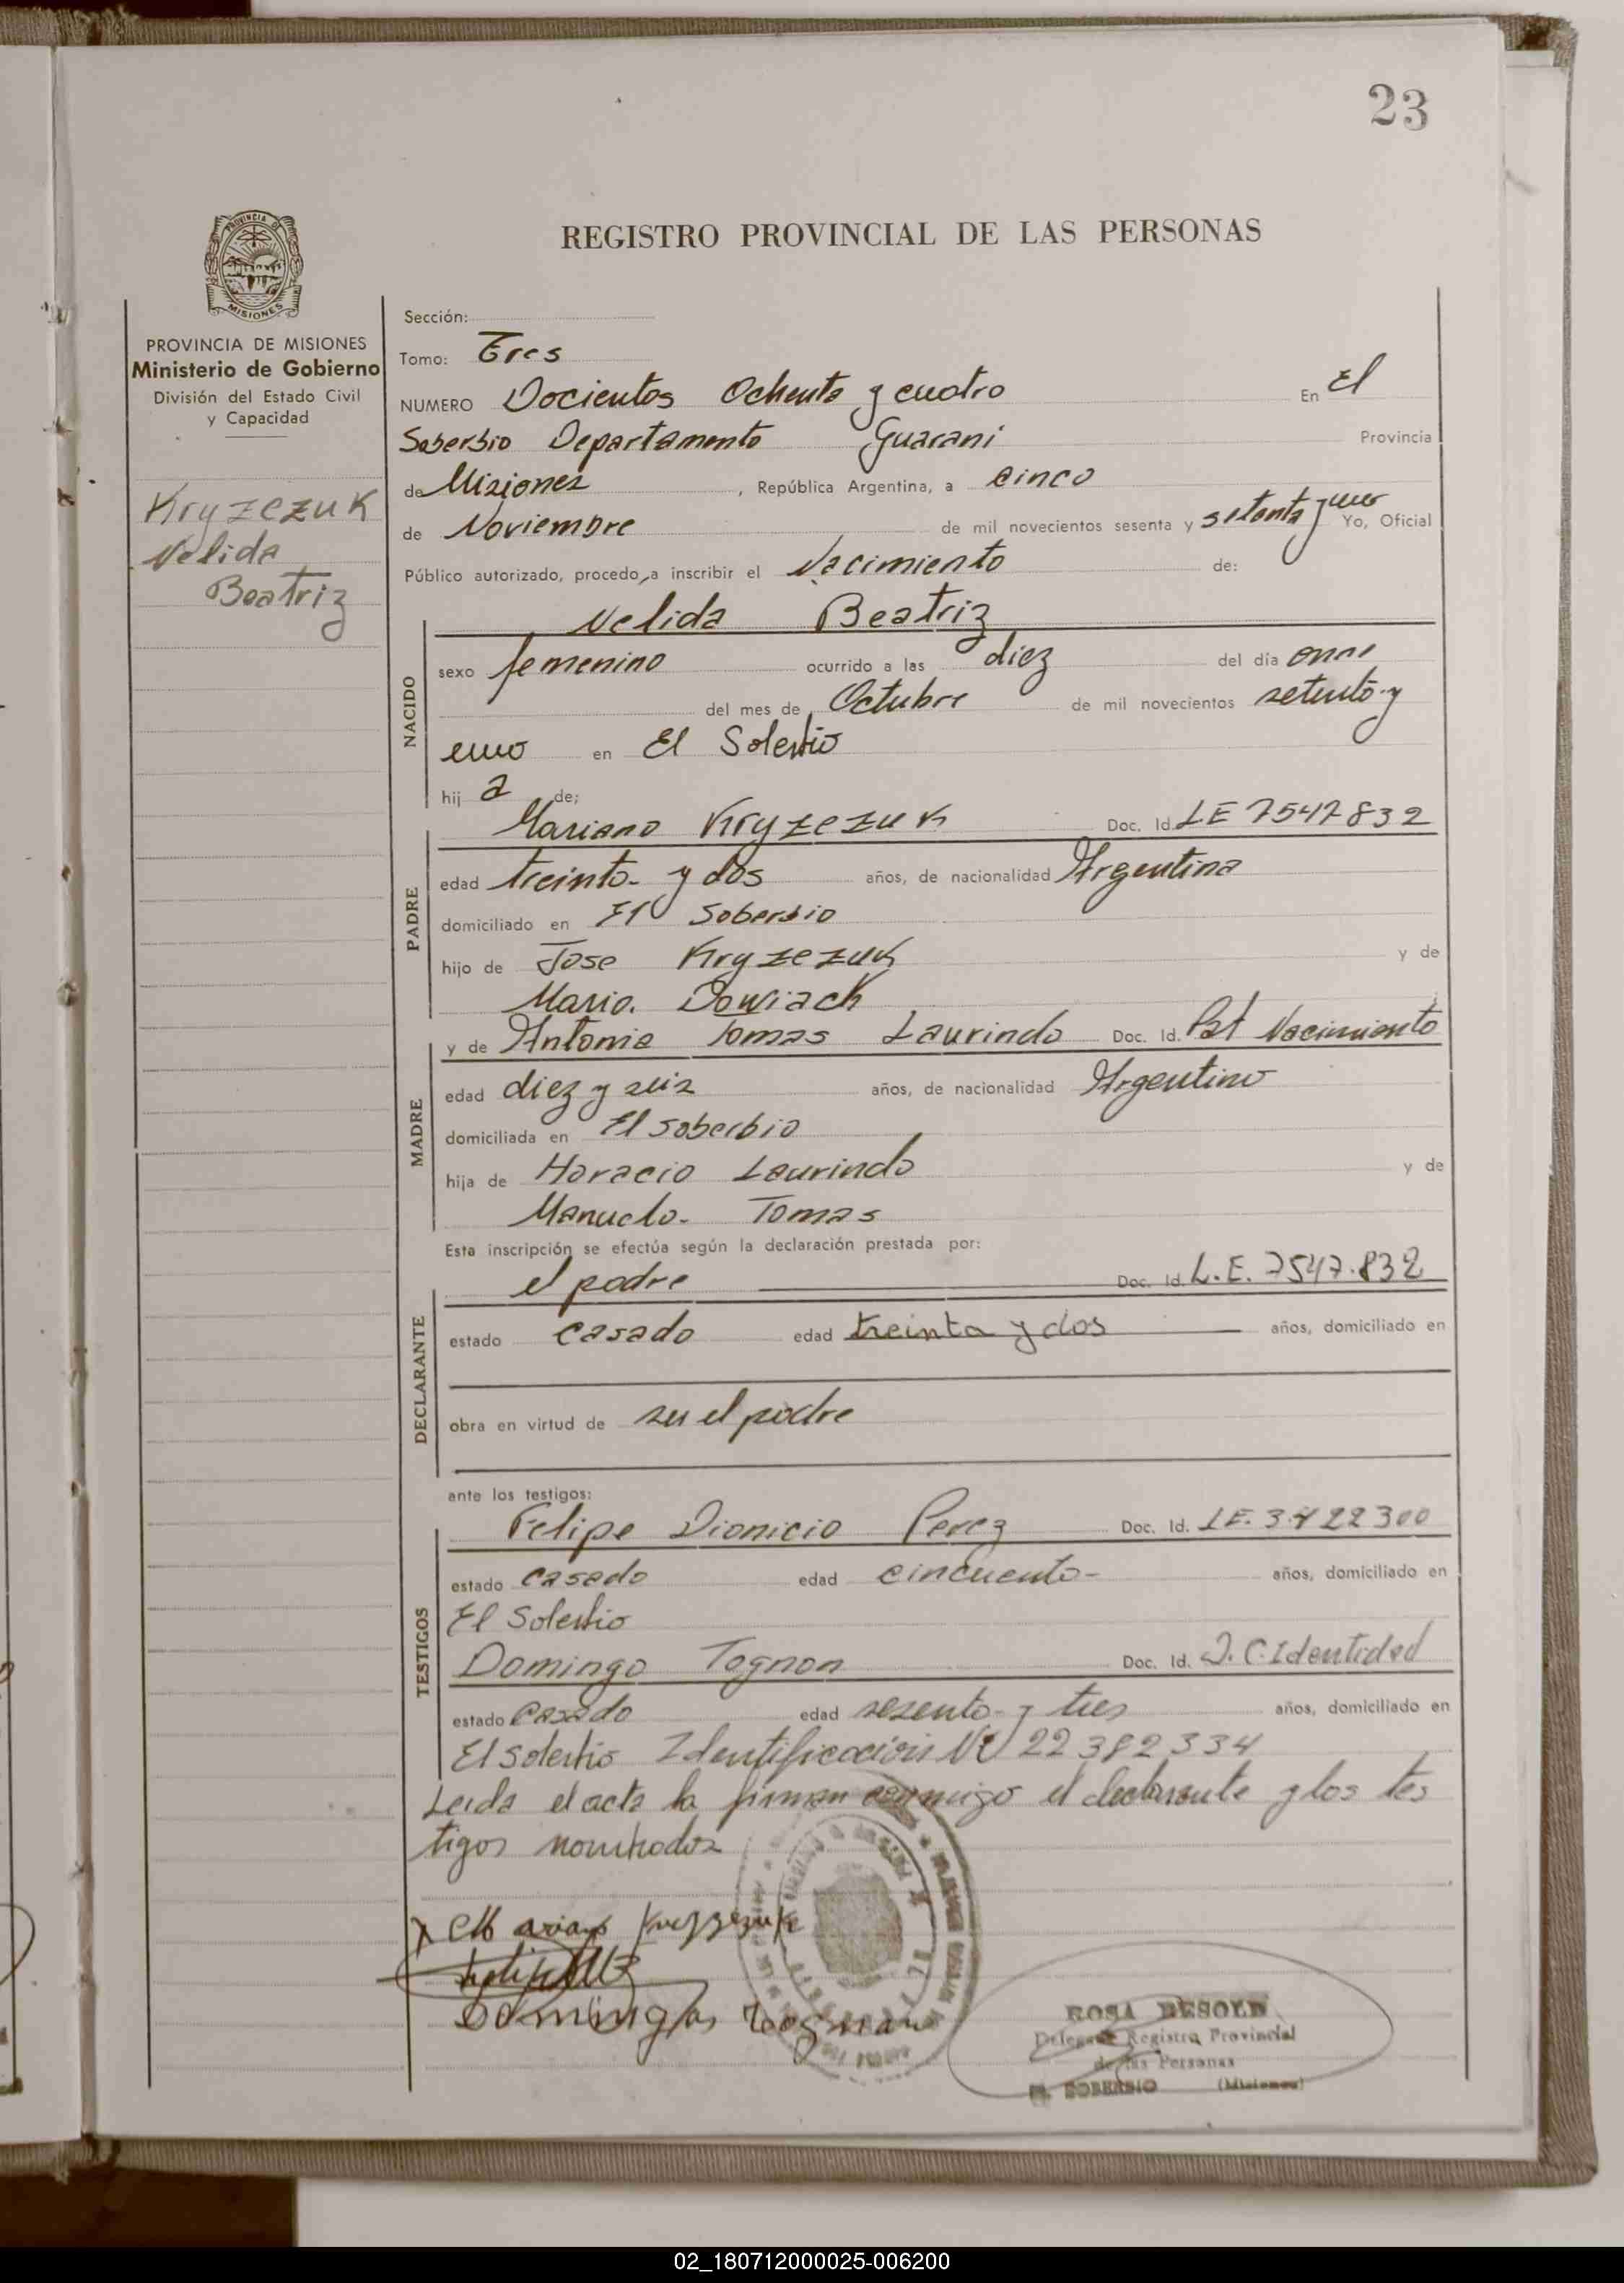 23
PROVINCIA DE
MISIONES
REGISTRO PROVINCIAL DE LAS PERSONAS
PROVINCIA DE MISIONES
Ministerio de Gobierno
División del Estado Civil
y Capacidad
Kryzezuk
Nelida
Beatriz
Sección:
Tomo: Tres
NUMERO Docientos Ochenta y cuatro En El
Soberbio Departamento Guarani Provincia
de Misiones, República Argentina, a cinco
de Noviembre de mil novecientos sesenta y setenta y uno Yo, Oficial
Público autorizado, procedo a inscribir el Nacimiento de:
Nelida Beatriz
NACIDO
sexo femenino ocurrido a las diez del día once
del mes de Octubre de mil novecientos setenta y
uno en El Soberbio
hij a de;
PADRE
Mariano Kryzezuk Doc. Id. LE 7547832
edad treinta y dos años, de nacionalidad Argentina
domiciliado en El Soberbio
hijo de Jose Kryzezuk y de
Maria Dowiach
MADRE
y de Antonia Tomas Laurindo Doc. Id. Pat Nacimiento
edad diez y seis años, de nacionalidad Argentina
domiciliada en El Soberbio
hija de Horacio Laurindo y de
Manuela Tomas
Esta inscripción se efectúa según la declaración prestada por:
DECLARANTE
el padre Doc. Id. L.E. 7547.832
estado casado edad treinta y dos años, domiciliado en
obra en virtud de ser el padre
ante los testigos:
TESTIGOS
Felipe Dionicio Perez Doc. Id. LE. 3422300
estado casado edad cincuenta años, domiciliado en
El Soberbio
Domingo Tognon Doc. Id. D. C. Identidad
estado casado edad sesenta y tres años, domiciliado en
El Soberbio Identificación Nº 22382334
Leida el acta la firman conmigo el declarante y los tes
tigos nombrados
x Mariano Kryzezuk
Domingo Tognon
ROSA BESOLD
Delegada Registro Provincial
de las Personas
EL SOBERBIO (Misiones)
02_180712000025-006200